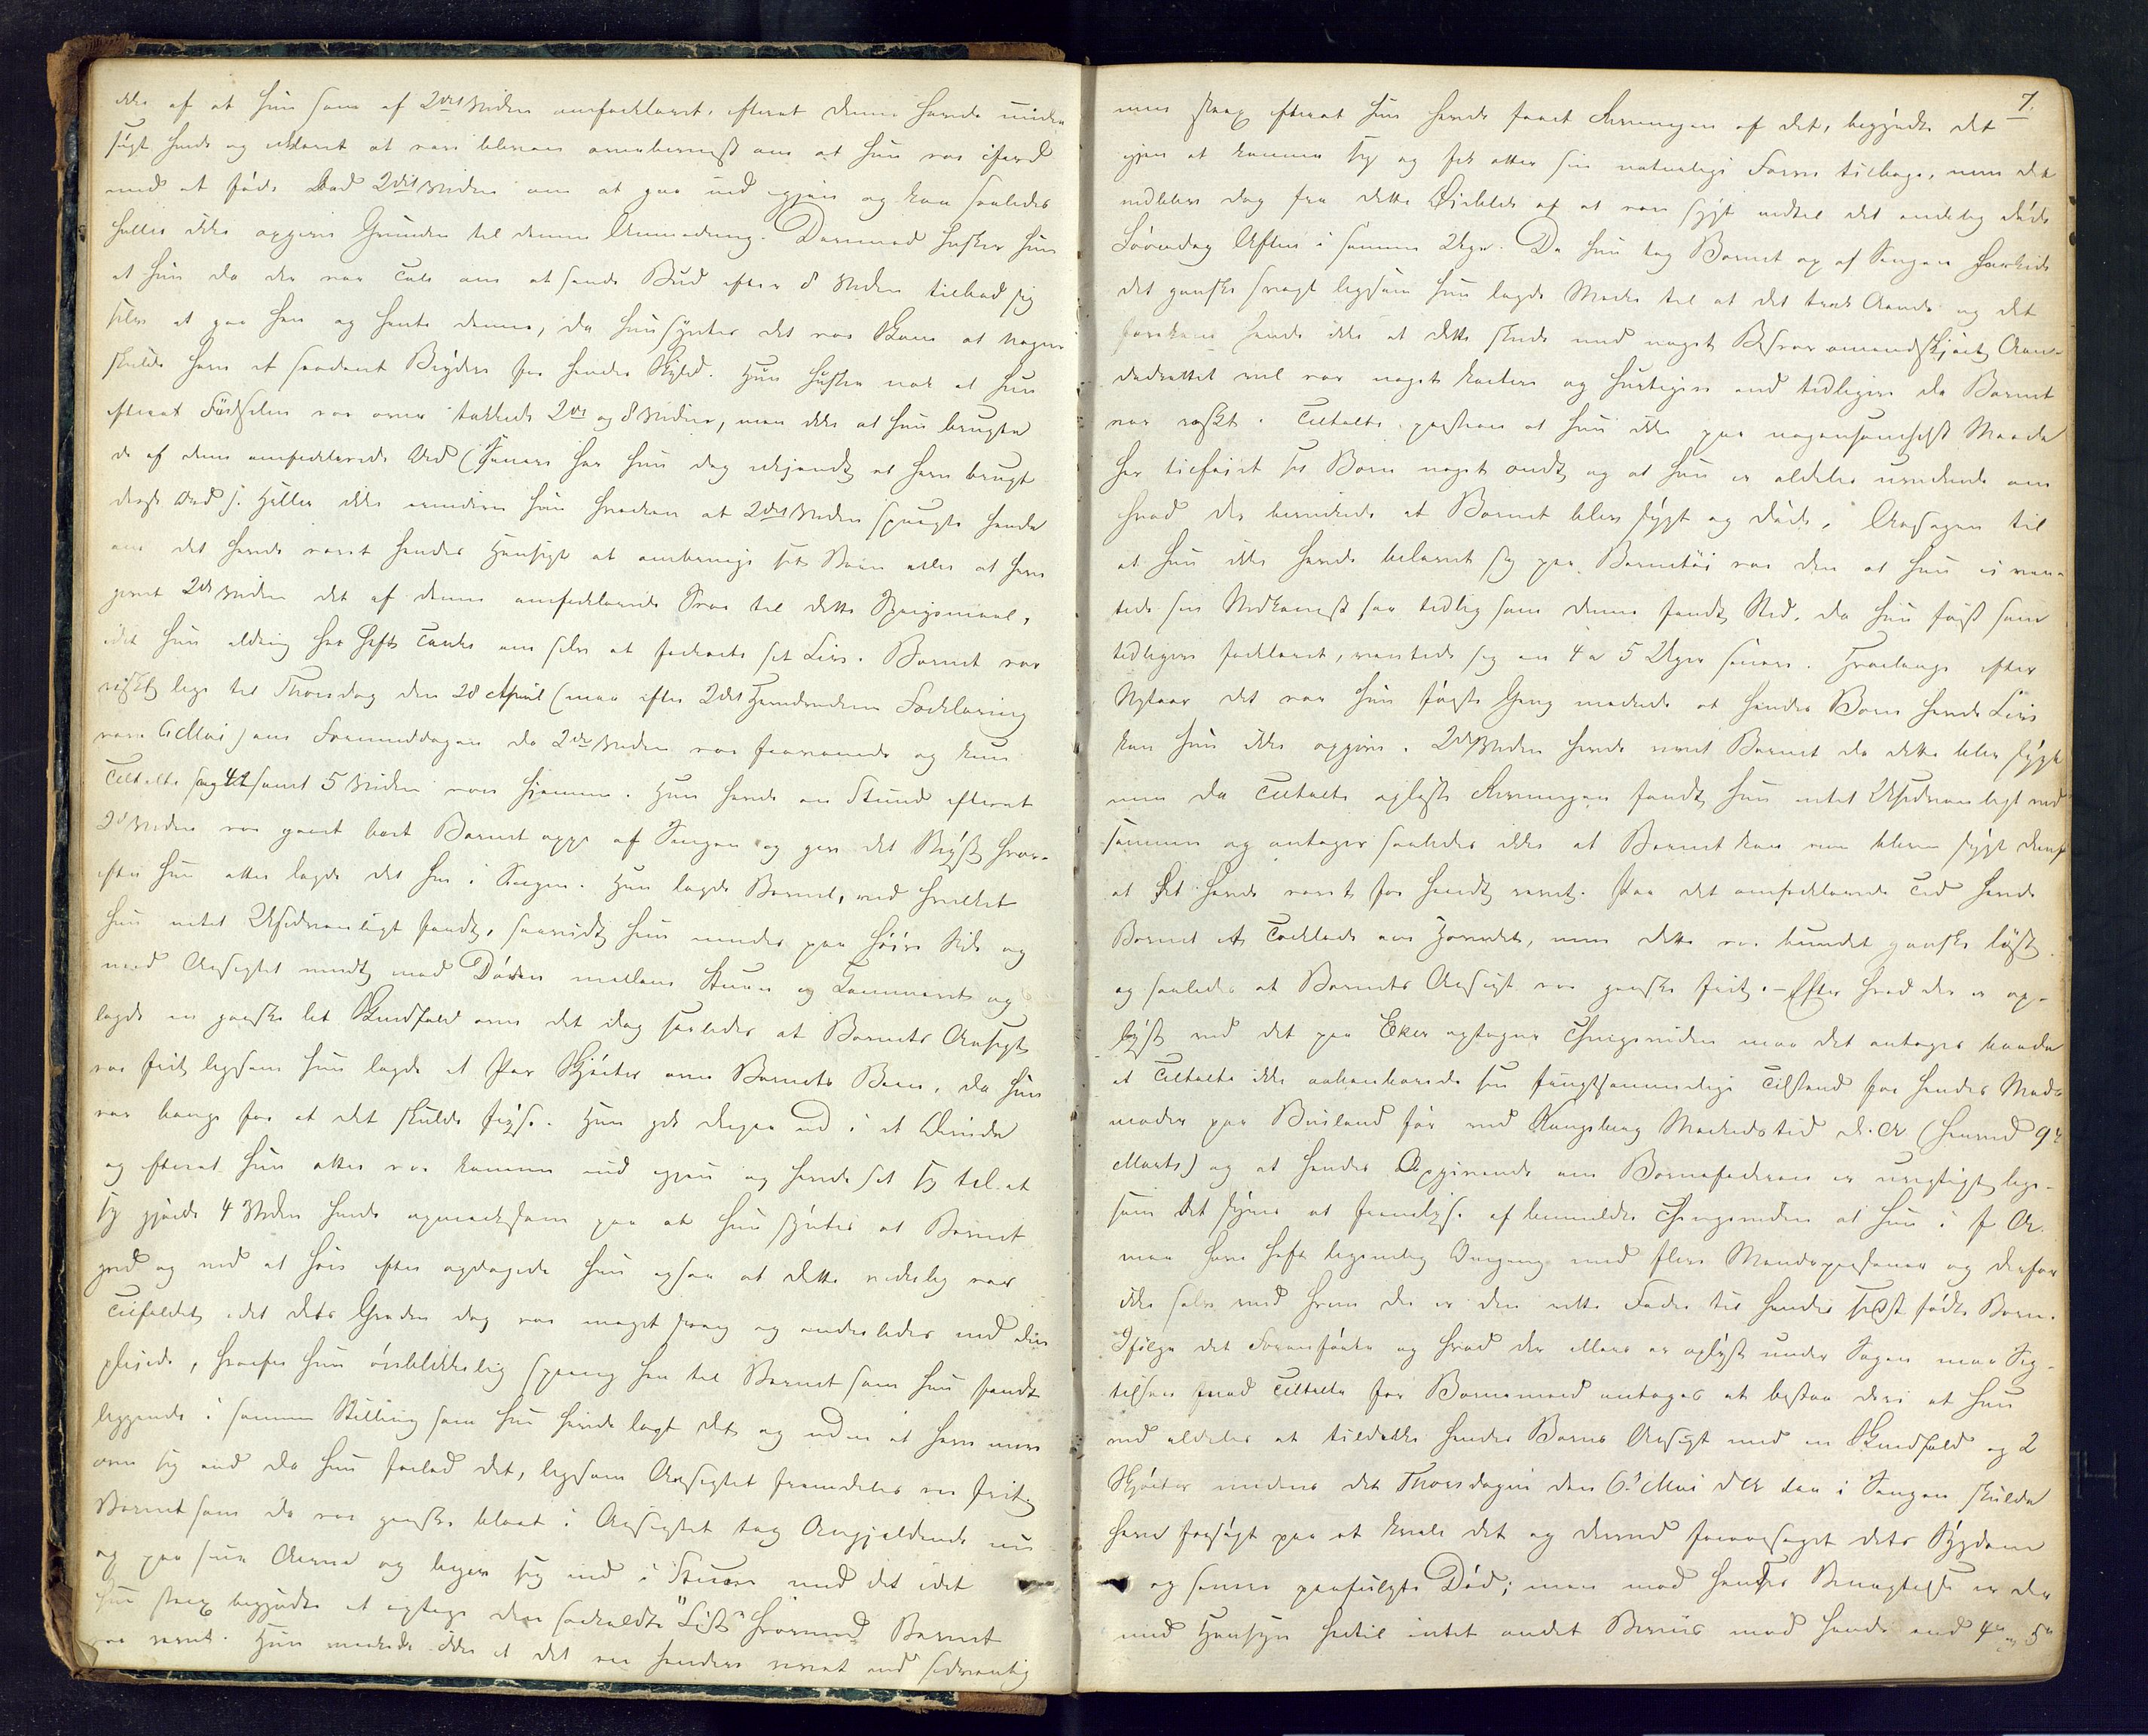 ikke af at hun som af 2det Vidne omforklaret, efterat denne havde under-
søgt hende og erklæret at være bleven overbeviist om at hun var ifærd
med at føde bad 2det Vidne om at gaa ud igjen og kan saaledes
heller ikke opgive Grunden til denne Anmodning. Derimod husker hun
at hun da der var Tale om at sende Bud efter 8 Vidne tilbød sig
selv at gaa hen og hente denne, da hun syntes det var Skam at Nogen
skulde have et saadant Bryderi for hendes Skyld. Hun husker nok at hun
efterat Fødselen var over takkede 2det og 8 Vidne, men ikke at hun brugte
de af dem omforklarede Ord (Senere har hun dog erkjendt at have brugt
disse Ord). Heller ikke erindrer hun hverken at 2det Vidne spurgte hende
om det havde været hendes Hensigt at ombringe sit Barn eller at have
givet 2det Vidne det af denne omforklarede Svar til dette Spørgsmaal,
idet hun aldrig har havt Tanke om selv at forkorte sit Liv. Barnet var
friskt lige til Thorsdag den 28 April (maa efter 2det Hovedvidnes Forklaring
være 6 Mai) om Formiddagen da 2det Vidne var fraværende og kun
Tiltalte og 4de samt 5 Vidne var hjemme. Hun havde en Stund efterat
2det Vidne var gaaet bort Barnet oppe af Sengen og gav det Bryst hvor-
efter hun atter lagde det hen i Sengen. Hun lagde Barnet, ved hvilket
hun intet Usædvanligt fandt, saavidt hun mindes paa høire Side og
med Ansigtet vendt mod Døren mellem Stuen og Kammeret og
lagde en ganske let Skindfæld over det dog saaledes at Barnets Ansigt
var frit ligesom hun lagde et Par Skjørter over Barnets Been, da hun
var bange for at det skulde fryse. Hun gik derpaa ud i et Ærinde
og efterat hun atter var kommen ind igjen og havde sat sig til at
sy gjorde 4 Vidne hende opmærksom paa at hun syntes at Barnet
græd og ved at høre efter opdagede hun ogsaa at dette virkelig var
Tilfældet, idet dets Graaden dog var meget svag og anderledes end den
pleiede, hvorfor hun øieblikkelig sprang hen til Barnet som hun fandt
liggende i samme Stilling som hun havde lagt det og uden at have mere
over sig end da hun forlod det, ligesom Ansigtet fremdeles var frit.
Barnet som da var ganske blaat i Ansigtet tog Angjældende nu
op paa sine Arme og begav sig ind i Stuen med det idet
hun strax begyndte at opløse den saakaldte "List" hvormed Barnet
var reevet. Hun mærkede ikke at det var haardere reevet end sædvanlig
7.
men strax efterat hun havde faaet Reevingen af det, begyndte det
igjen at komme sig og fik atter sin naturlige Farve tilbage, men det
vedblev dog fra dette Øieblik af at være sygt indtil det endelig døde
Løverdag Aften i samme Uge. Da hun tog Barnet op af Sengen forekom
det ganske svagt ligesom hun lagde Mærke til at det trak Aande og det
forekom hende ikke at dette skede med noget Besvær omendskjønt Aan-
dedrættet vel var noget kortere og hurtigere end tidligere da Barnet
var raskt. Tiltalte paastaar at hun ikke paa nogensomhelst Maade
har tilføiet sit Barn noget ondt og at hun er aldeles uvidende om
hvad der bevirkede at Barnet blev sygt og døde. Aarsagen til
at hun ikke havde belavet sig paa Barnetøi var den at hun ei ven-
tede sin Nedkomst saa tidlig som denne fandt Sted, da hun først som
tidligere forklaret, ventede sig en 4 a 5 Uger senere. Hvorlænge efter
Nytaar det var hun første Gang mærkede at hendes Barn havde Liv
kan hun ikke opgive. 2det Vidne havde reevet Barnet da dette blev sygt
men da Tiltalte opløste Reevingen fandt hun intet Usædvanligt ved
samme og antager saaledes ikke at Barnet kan være bleven sygt deraf
at det havde været for haardt reevet. Paa det omforklarede Tid havde
Barnet et Tørklæde om Hovedet, men dette var bundet ganske løst
og saaledes at Barnets Ansigt var ganske frit. — Efter hvad der er op-
lyst ved det paa Eker optagne Thingsvidne maa det antages baade
at Tiltalte ikke aabenbarede sin frugtsommelige Tilstand for hendes Mad-
moder paa Builand før ved Kongsberg Markedstid d. A. (henved 9de
Marts) og at hendes Opgivende om Barnefaderen er urigtigt lige-
som det synes at fremlyse af bemeldte Thingsvidne at hun i f. A.
maa have havt legemlig Omgang med flere Mandspersoner og derfor
ikke selv ved hvem der er den rette Fader til hendes sidst fødte Barn.
Ifølge det Foranførte og hvad der ellers er oplyst under Sagen maa Sig-
telsen mod Tiltalte for Barnemord antages at bestaa deri at hun
ved aldeles at tildække hendes Barns Ansigt med en Skindfæld og 2
Skjørter medens det Thorsdagen den 6te Mai d. A. laa i Sengen skulde
have forsøgt paa at kvæle det og derved foraarsaget dets Sygdom
og senere paafulgte Død; men mod hendes Benægtelse er der
med Hensyn hertil intet andet Beviis mod hende end 4de og 5te